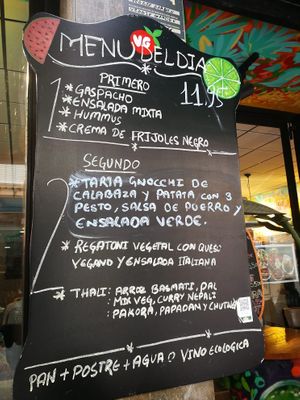 MENU DEL DIA
VG
PRIMERO
11.95
1 * GASPACHO
* ENSALADA MIXTA
* HUMMUS
* CREMA DE FRIJOLES NEGRO
SEGUNDO
2 * TARTA GNOCCHI DE
CALABAZA Y PATATA CON 3
PESTO, SALSA DE PUERRO Y
ENSALADA VERDE.
* REGATONI VEGETAL CON QUESO
VEGANO Y ENSALADA ITALIANA
* THALI: ARROZ BASMATI, DAL
: MIX VEG, CURRY NEPALI
: PAKORA, PAPADAN Y CHUTNEY
PAN + POSTRE + AGUA O VINO ECOLOGICA